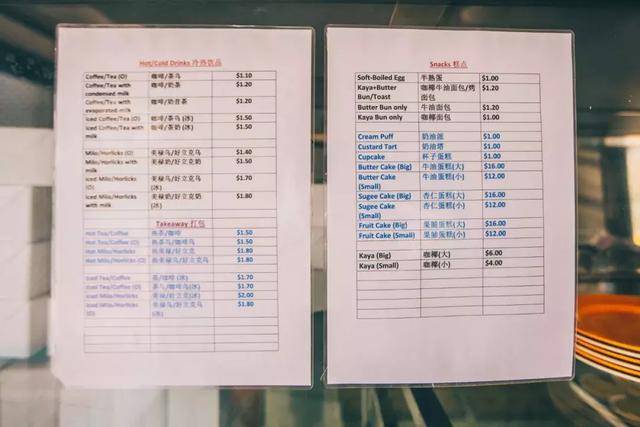 Hot/Cold Drinks 冷热饮品
Coffee/Tea (O) 咖啡/茶乌 $1.10
Coffee/Tea with 咖啡/茶奶 $1.20
condensed milk
Coffee/Tea with $1.20
evaporated milk
Iced Coffee/Tea (O) 咖啡/茶乌 (冰) $1.50
Iced Coffee/Tea with 咖啡/茶奶 (冰) $1.50
milk
Milo/Horlicks (O) 美禄乌/好立克乌 $1.40
Milo/Horlicks with 美禄奶/好立克奶 $1.50
milk
Iced Milo/Horlicks 美禄乌/好立克乌 $1.70
(O) (冰)
Iced Milo/Horlicks 美禄奶/好立克奶 $1.80
with milk (冰)
Takeaway 打包
Hot Tea/Coffee 热茶/咖啡 $1.50
Hot Tea/Coffee (O) 热茶乌/咖啡乌 $1.50
Hot Milo/Horlicks 热美禄/好立克 $1.80
Hot Milo/Horlicks (O) 热美禄乌/好立克乌 $1.80
Iced Tea/Coffee 茶/咖啡 (冰) $1.70
Iced Tea/Coffee (O) 茶乌/咖啡乌(冰) $1.70
Iced Milo/Horlicks 美禄/好立克(冰) $2.00
Iced Milo/Horlicks 美禄乌/好立克乌 $1.80
(O) (冰)
Snacks 糕点
Soft-Boiled Egg 半熟蛋 $1.00
Kaya+Butter 咖椰牛油面包/烤 $1.20
Bun/Toast 面包
Butter Bun only 牛油面包 $1.20
Kaya Bun only 咖椰面包 $1.00
Cream Puff 奶油派 $1.00
Custard Tart 奶油塔 $1.00
Cupcake 杯子蛋糕 $1.00
Butter Cake (Big) 牛油蛋糕(大) $16.00
Butter Cake 牛油蛋糕(小) $12.00
(Small)
Sugee Cake (Big) 杏仁蛋糕(大) $16.00
Sugee Cake 杏仁蛋糕(小) $12.00
(Small)
Fruit Cake (Big) 果脯蛋糕(大) $16.00
Fruit Cake (Small) 果脯蛋糕(小) $12.00
Kaya (Big) 咖椰(大) $6.00
Kaya (Small) 咖椰(小) $4.00